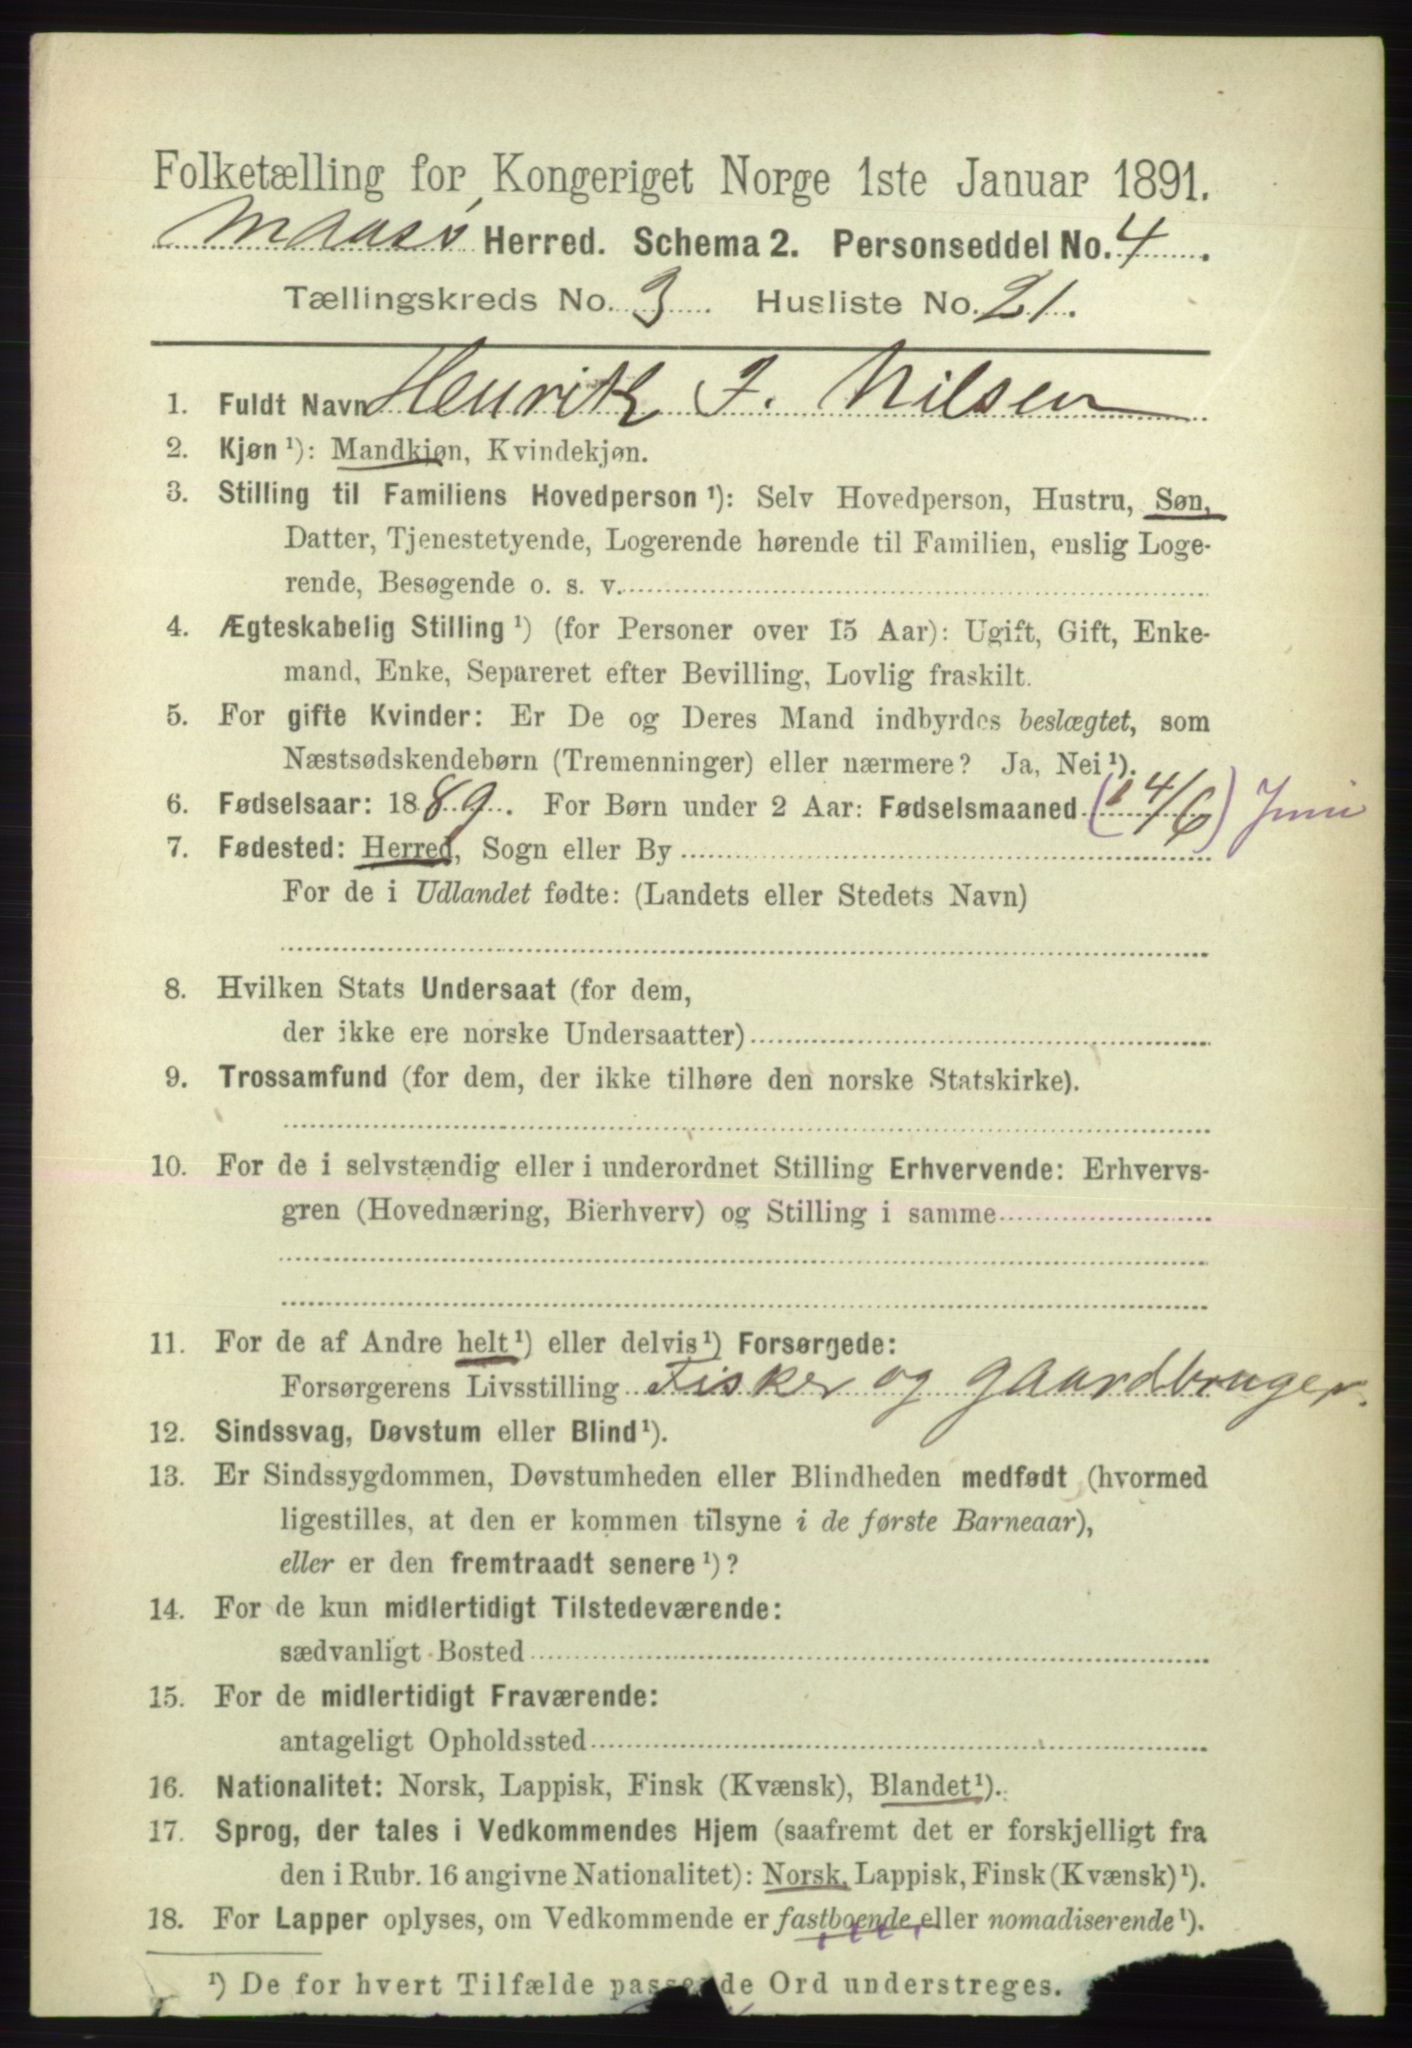 Folketælling for Kongeriget Norge 1ste Januar 1891.
Maasø Herred. Schema 2. Personseddel No. 4.
Tællingskreds No. 3. Husliste No. 21.
1. Fuldt Navn Henrik J. Nilsen
2. Kjøn ¹): Mandkjøn, Kvindekjøn.
3. Stilling til Familiens Hovedperson ¹): Selv Hovedperson, Hustru, Søn,
Datter, Tjenestetyende, Logerende hørende til Familien, enslig Loge-
rende, Besøgende o. s. v.
4. Ægteskabelig Stilling ¹) (for Personer over 15 Aar): Ugift, Gift, Enke-
mand, Enke, Separeret efter Bevilling, Lovlig fraskilt.
5. For gifte Kvinder: Er De og Deres Mand indbyrdes beslægtet, som
Næstsødskendebørn (Tremenninger) eller nærmere? Ja, Nei ¹).
6. Fødselsaar: 1889. For Børn under 2 Aar: Fødselsmaaned (24/6) Juni
7. Fødested: Herred, Sogn eller By
For de i Udlandet fødte: (Landets eller Stedets Navn)
8. Hvilken Stats Undersaat (for dem,
der ikke ere norske Undersaatter)
9. Trossamfund (for dem, der ikke tilhøre den norske Statskirke).
10. For de i selvstændig eller i underordnet Stilling Erhvervende: Erhvervs-
gren (Hovednæring, Bierhverv) og Stilling i samme
11. For de af Andre helt ¹) eller delvis ¹) Forsørgede:
Forsørgerens Livsstilling Fisker og gaardbruger.
12. Sindssvag, Døvstum eller Blind ¹).
13. Er Sindssygdommen, Døvstumheden eller Blindheden medfødt (hvormed
ligestilles, at den er kommen tilsyne i de første Barneaar),
eller er den fremtraadt senere ¹)?
14. For de kun midlertidigt Tilstedeværende:
sædvanligt Bosted
15. For de midlertidigt Fraværende:
antageligt Opholdssted
16. Nationalitet: Norsk, Lappisk, Finsk (Kvænsk), Blandet ¹).
17. Sprog, der tales i Vedkommendes Hjem (saafremt det er forskjelligt fra
den i Rubr. 16 angivne Nationalitet): Norsk, Lappisk, Finsk (Kvænsk) ¹).
18. For Lapper oplyses, om Vedkommende er fastboende eller nomadiserende ¹).
¹) De for hvert Tilfælde passende Ord understreges.